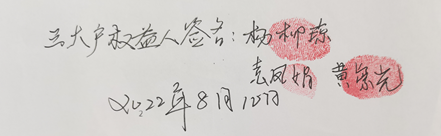 三大户权益人签名：杨柳琼
袁凤娟 黄宗光
2022年8月10日